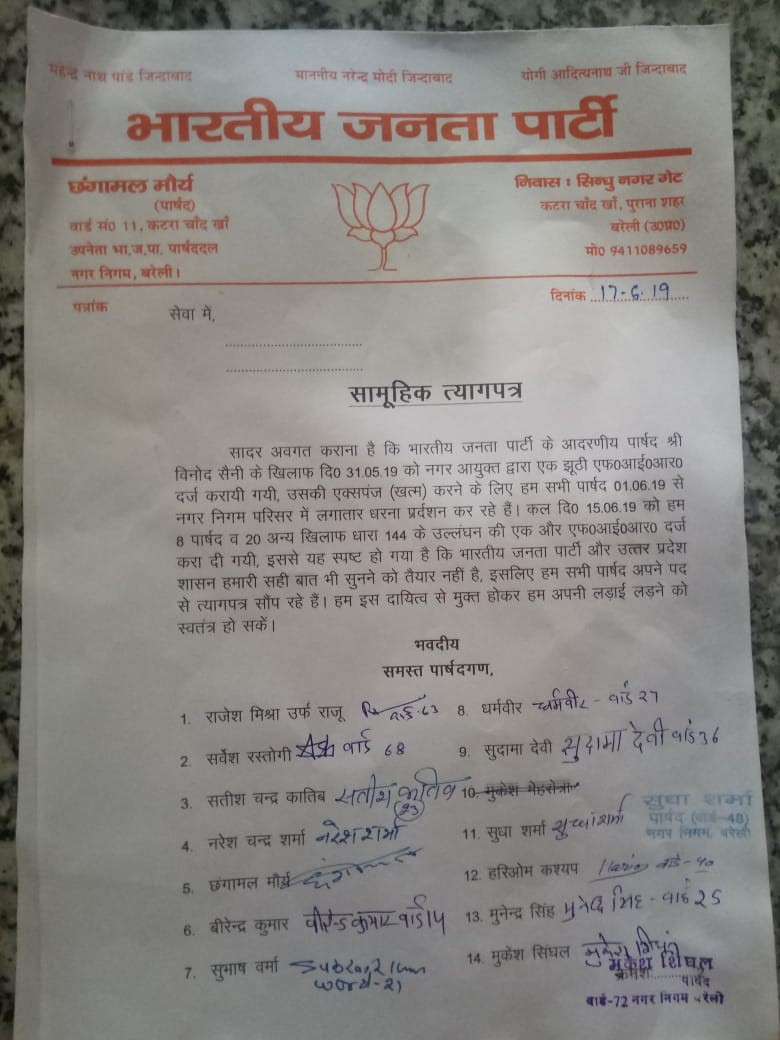 महेन्द्र नाथ पांडे जिन्दाबाद माननीय नरेन्द्र मोदी जिन्दाबाद योगी आदित्यनाथ जी जिन्दाबाद
भारतीय जनता पार्टी
छंगामल मौर्य
(पार्षद)
वार्ड सं0 11, कटरा चाँद खाँ
उपनेता भा,ज,पा, पार्षददल
नगर निगम, बरेली।
निवास : सिन्धु नगर गेट
कटरा चाँद खाँ, पुराना शहर
बरेली (उ0प्र0)
मो0 9411089659
पत्रांक
दिनांक 17-6.19
सेवा में,
सामूहिक त्यागपत्र
सादर अवगत कराना है कि भारतीय जनता पार्टी के आदरणीय पार्षद श्री
विनोद सैनी के खिलाफ दि0 31.05.19 को नगर आयुक्त द्वारा एक झूठी एफ0आई0आर0
दर्ज करायी गयी, उसकी एक्सपंज (खत्म) करने के लिए हम सभी पार्षद 01.06.19 से
नगर निगम परिसर में लगातार धरना प्रर्दशन कर रहे हैं। कल दि0 15.06.19 को हम
8 पार्षद व 20 अन्य खिलाफ धारा 144 के उल्लंघन की एक और एफ0आई0आर0 दर्ज
करा दी गयी, इससे यह स्पष्ट हो गया है कि भारतीय जनता पार्टी और उत्तर प्रदेश
शासन हमारी सही बात भी सुनने को तैयार नहीं है, इसलिए हम सभी पार्षद अपने पद
से त्यागपत्र सौंप रहे हैं। हम इस दायित्व से मुक्त होकर हम अपनी लड़ाई लड़ने को
स्वतंत्र हो सकें।
भवदीय
समस्त पार्षदगण,
1. राजेश मिश्रा उर्फ राजू वार्ड-63
2. सर्वेश रस्तोगी वार्ड 68
3. सतीश चन्द्र कातिब सतीश कातिब
4. नरेश चन्द्र शर्मा नरेश शर्मा
5. छंगामल मौर्य
6. बीरेन्द्र कुमार वीरेन्द्र कुमार वार्ड 14
7. सुभाष वर्मा
word-21
8. धर्मवीर धर्मवीर - वार्ड 27
9. सुदामा देवी सुदामा देवी वार्ड 36
10. मुकेश मेहरोत्रा
11. सुधा शर्मा सुधा शर्मा
सुधा शर्मा
पार्षद (वार्ड-48)
नगर निगम, बरेली
12. हरिओम कश्यप वार्ड-40
13. मुनेन्द्र सिंह मुनेन्द्र सिंह - वार्ड 25
14. मुकेश सिंघल
मुकेश सिंघल
पार्षद
वार्ड-72 नगर निगम बरेली